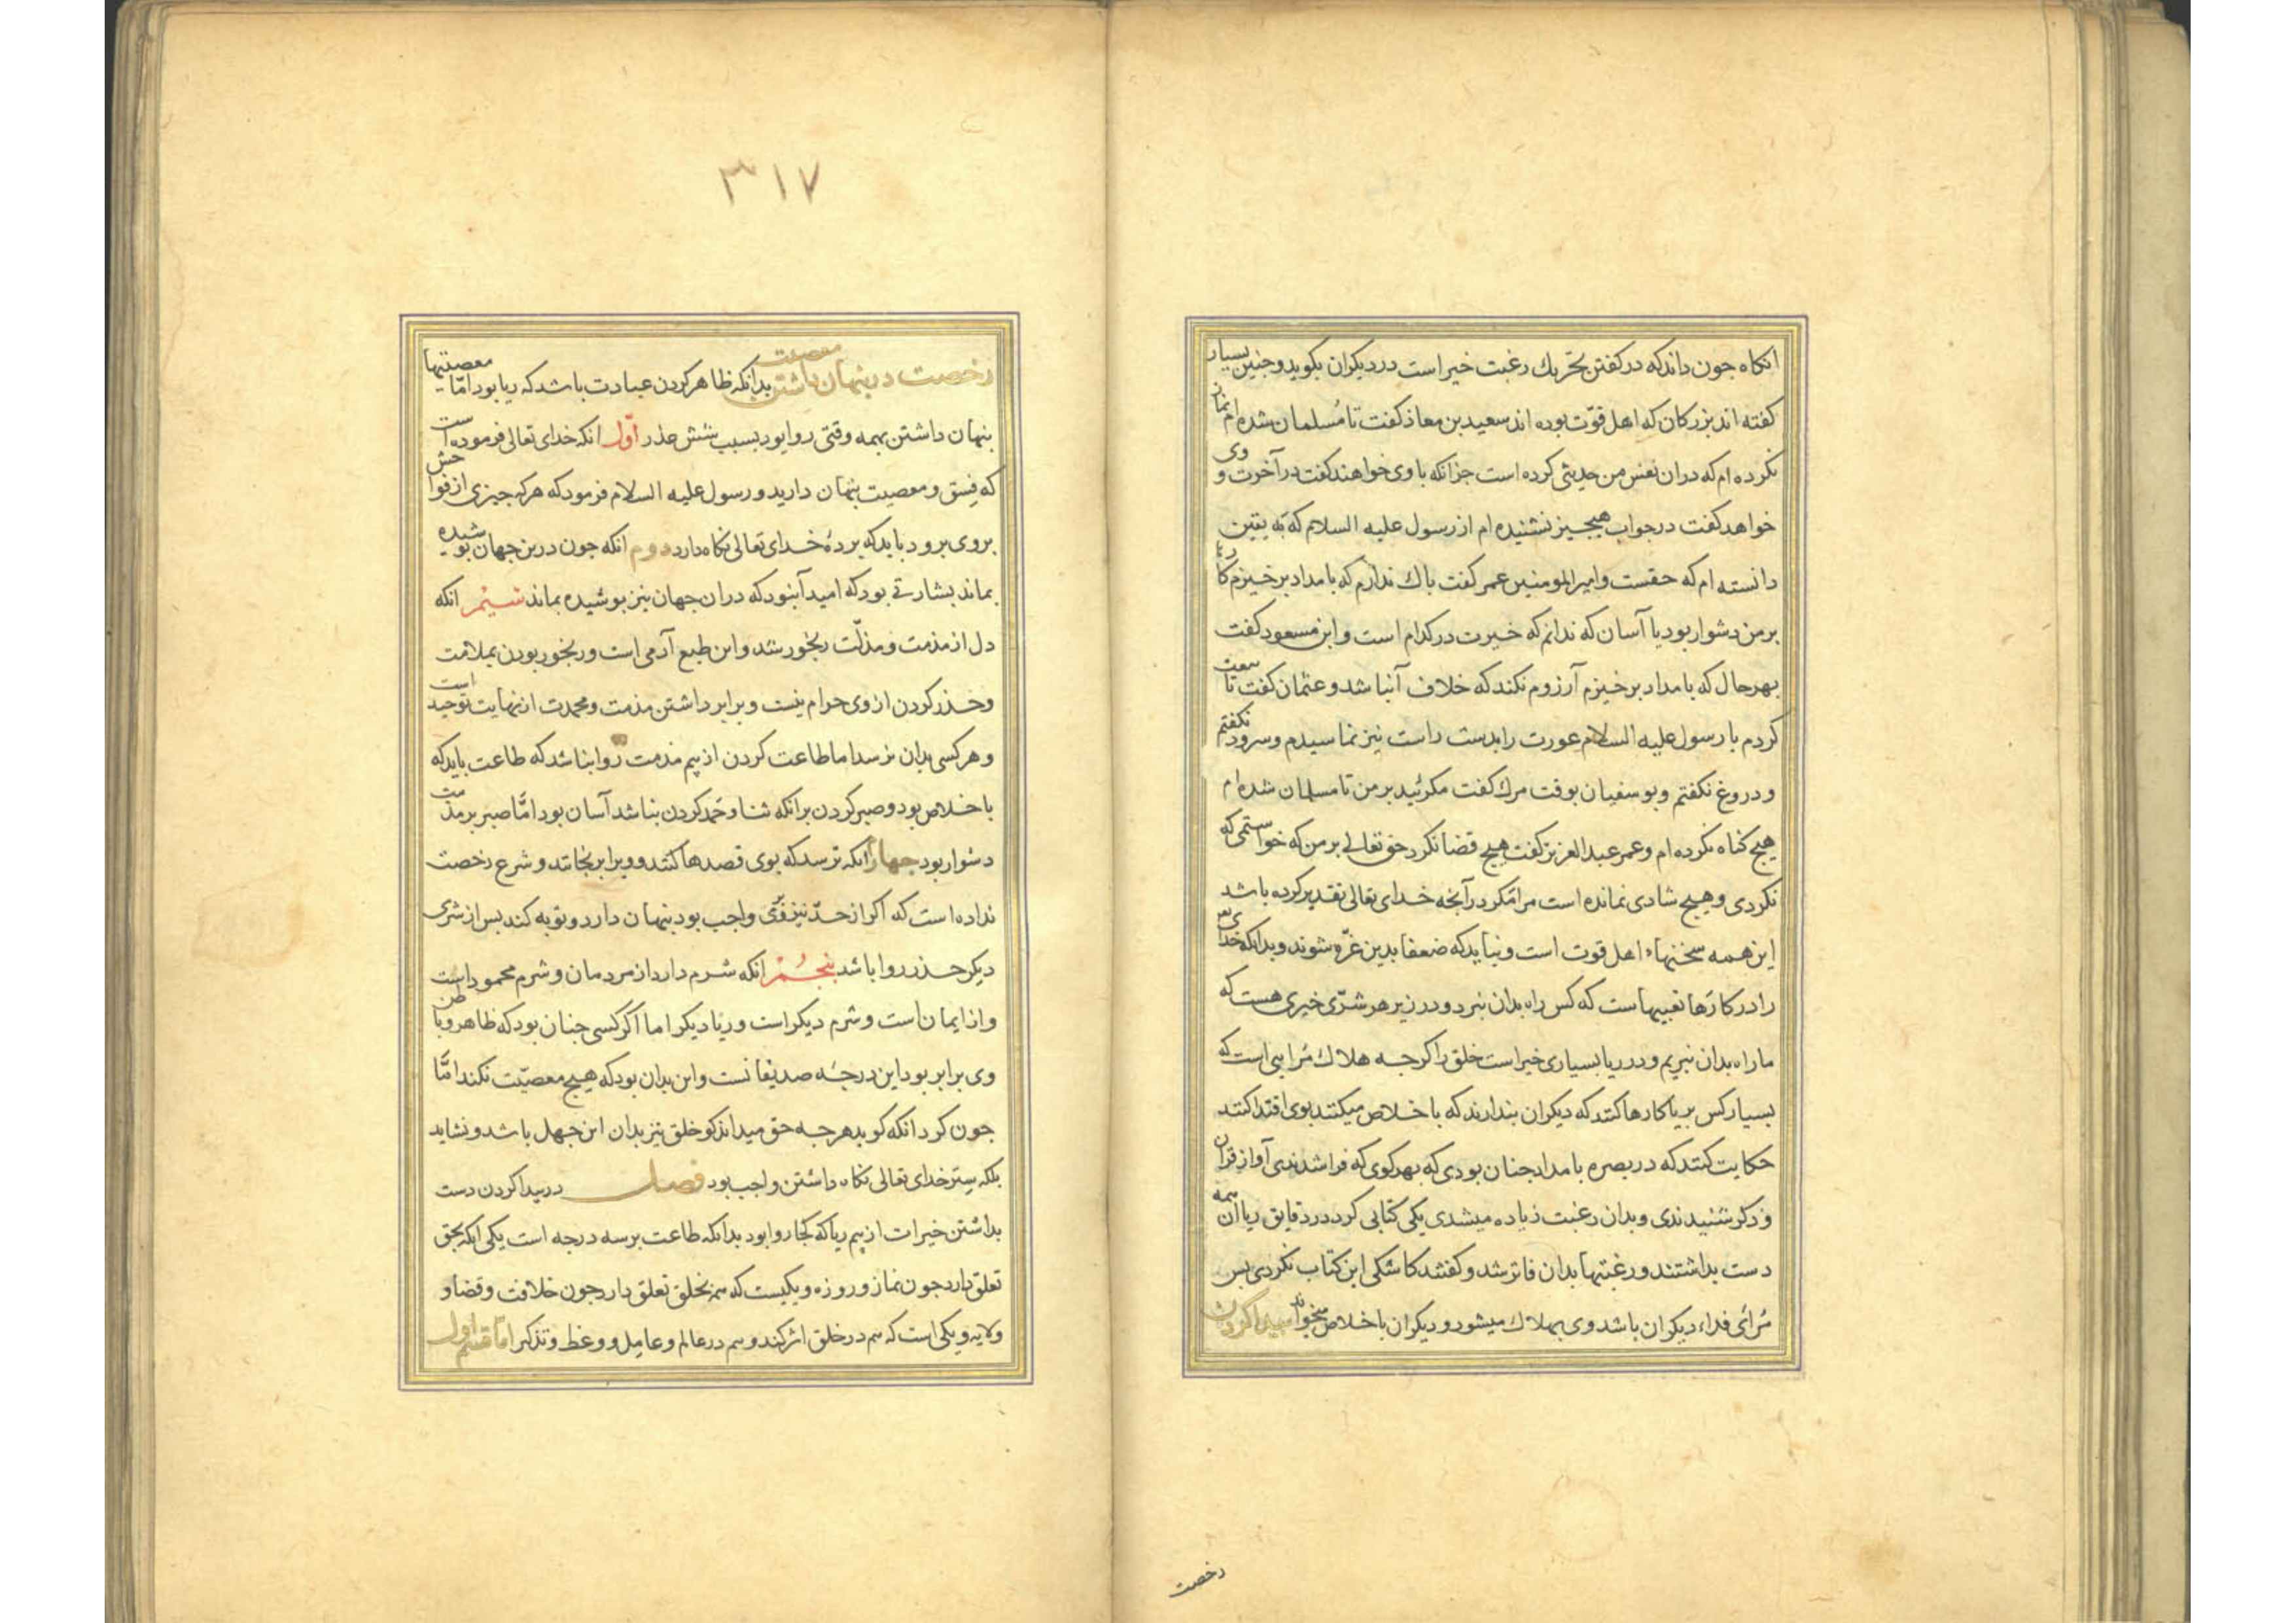 انکاه جون داند که در کفتن تحریك رغبت خیر است در دیکران بکوید و جنین بسیار
کفته اند بزرکان که اهل قوّت بوده اند سعید بن معاذ کفت تا مُسلمان شده ام نماز
نکرده ام که دران نفس من حدیثی کرده است جز انکه با وی خواهند کفت در آخرت و وی
خواهد کفت در جواب هیجیز نشنیده ام از رسول علیه السلام که نه یقین
دانسته ام که حقست و امیرالمومنین عمر کفت باك ندارم که بامداد بر خیزم کارها
بر من دشوار بود یا آسان که ندانم که خیرت در کدام است و ابن مسعود کفت
بهر حال که بامداد بر خیزم آرزوم نکند که خلاف آن باشد و عثمان کفت تا بیعت
کردم با رسول علیه السلام عورت را بدست راست نیز نماسیدم و سرود نکفتم
و دروغ نکفتم و بوسفیان بوقت مرك کفت مکرئید بر من تا مسلمان شده ام
هیج کناه نکرده ام و عمر عبد العزیز کفت هیج قضا نکرد حق تعالی بر من که خواستمی که
نکردی و هیج شادی نمانده است مرا مکر در آنجه خدای تعالی تقدیر کرده باشد
این همه سخنهاء اهل قوت است و نباید که ضعفا بدین غرّه شوند و بدانکه خدای
را در کارها تعبیهاست که کس راه بدان نبرد و در زیر هر شرّی خیری هست که
ما راه بدان نبریم و در ریا بسیاری خیر است خلق را کرجه هلاك مُرایی است که
بسیار کس بریا کارها کنند که دیکران بندارند که باخلاص میکنند بوی اقتدا کنند
حکایت کنند که در بصره بامداد جنان بودی که بهر کوی که فرا شدندی آواز قران
و ذکر شنیدندی و بدان رغبت زیاده میشدی یکی کتابی کرد در دقایق ریا آن همه
دست بداشتند و رغبتها بدان فاتر شد و کفتند کاشکی این کتاب نکردی بس
مُرائی فداء دیکران باشد وی بهلاك میشود و دیکران باخلاص میخواند بیدا کردن
رخصت
٣١٧
رخصت در بنهان داشتن معصیت بدانکه ظاهر کردن عبادت باشد که ریا بود امّا معصیتها
بنهان داشتن بهمه وقتی روا بود بسبب شش عذر اوّل انکه خدای تعالی فرموده است
که فسق و معصیت بنهان دارید و رسول علیه السلام فرمود که هر که جیزی از فواحش
بر وی برود باید که بردهٔ خدای تعالی نکاه دارد دوم انکه جون درین جهان بوشیده
بماند بشارتی بود که امید آن بود که دران جهان نیز بوشیده بماند سیّم انکه
دل از مذمت و مذلّت رنجور شد و این طبع آدمی است و رنجور بودن بملامت
و حذر کردن از وی حرام نیست و برابر داشتن مذمت و محمدت از نهایت توحید است
و هر کسی بدان نرسد اما طاعت کردن از بیم مذمت روا نباشد که طاعت باید که
باخلاص بود و صبر کردن برانکه ثنا و حمد کردن نباشد آسان بود امّا صبر بر مذمت
دشوار بود جهارم انکه ترسد که بوی قصدها کنند و ویرا برنجانند و شرع رخصت
نداده است که اکر از حدّ نیز واجب بود بنهان دارد و توبه کند بس از شری
دیکر حذر روا باشد بنجُم انکه شرم دارد از مردمان و شرم محمود است
و از ایمان است و شرم دیکر است و ریا دیکر اما اکر کسی جنان بود که ظاهر و باطن
وی برابر بود این درجهٔ صدیقانست و این بدان بود که هیج معصیّت نکند امّا
جون کرد انکه کوید هرجه حق میداند کو خلق نیز بدان این جهل باشد و نشاید
بلکه سِتر خدای تعالی نکاه داشتن واجب بود فصل در بیدا کردن دست
بداشتن خیرات از بیم ریا که کجا روا بود بدانکه طاعت بر سه درجه است یکی انکه بحق
تعلق دارد جون نماز و روزه و یکیست که هم بخلق تعلق دارد جون خلافت و قضا و
ولایه و یکی است که هم در خلق اثر کند و هم در عالم و عامل و وعظ و تذکیر امّا قسم اول